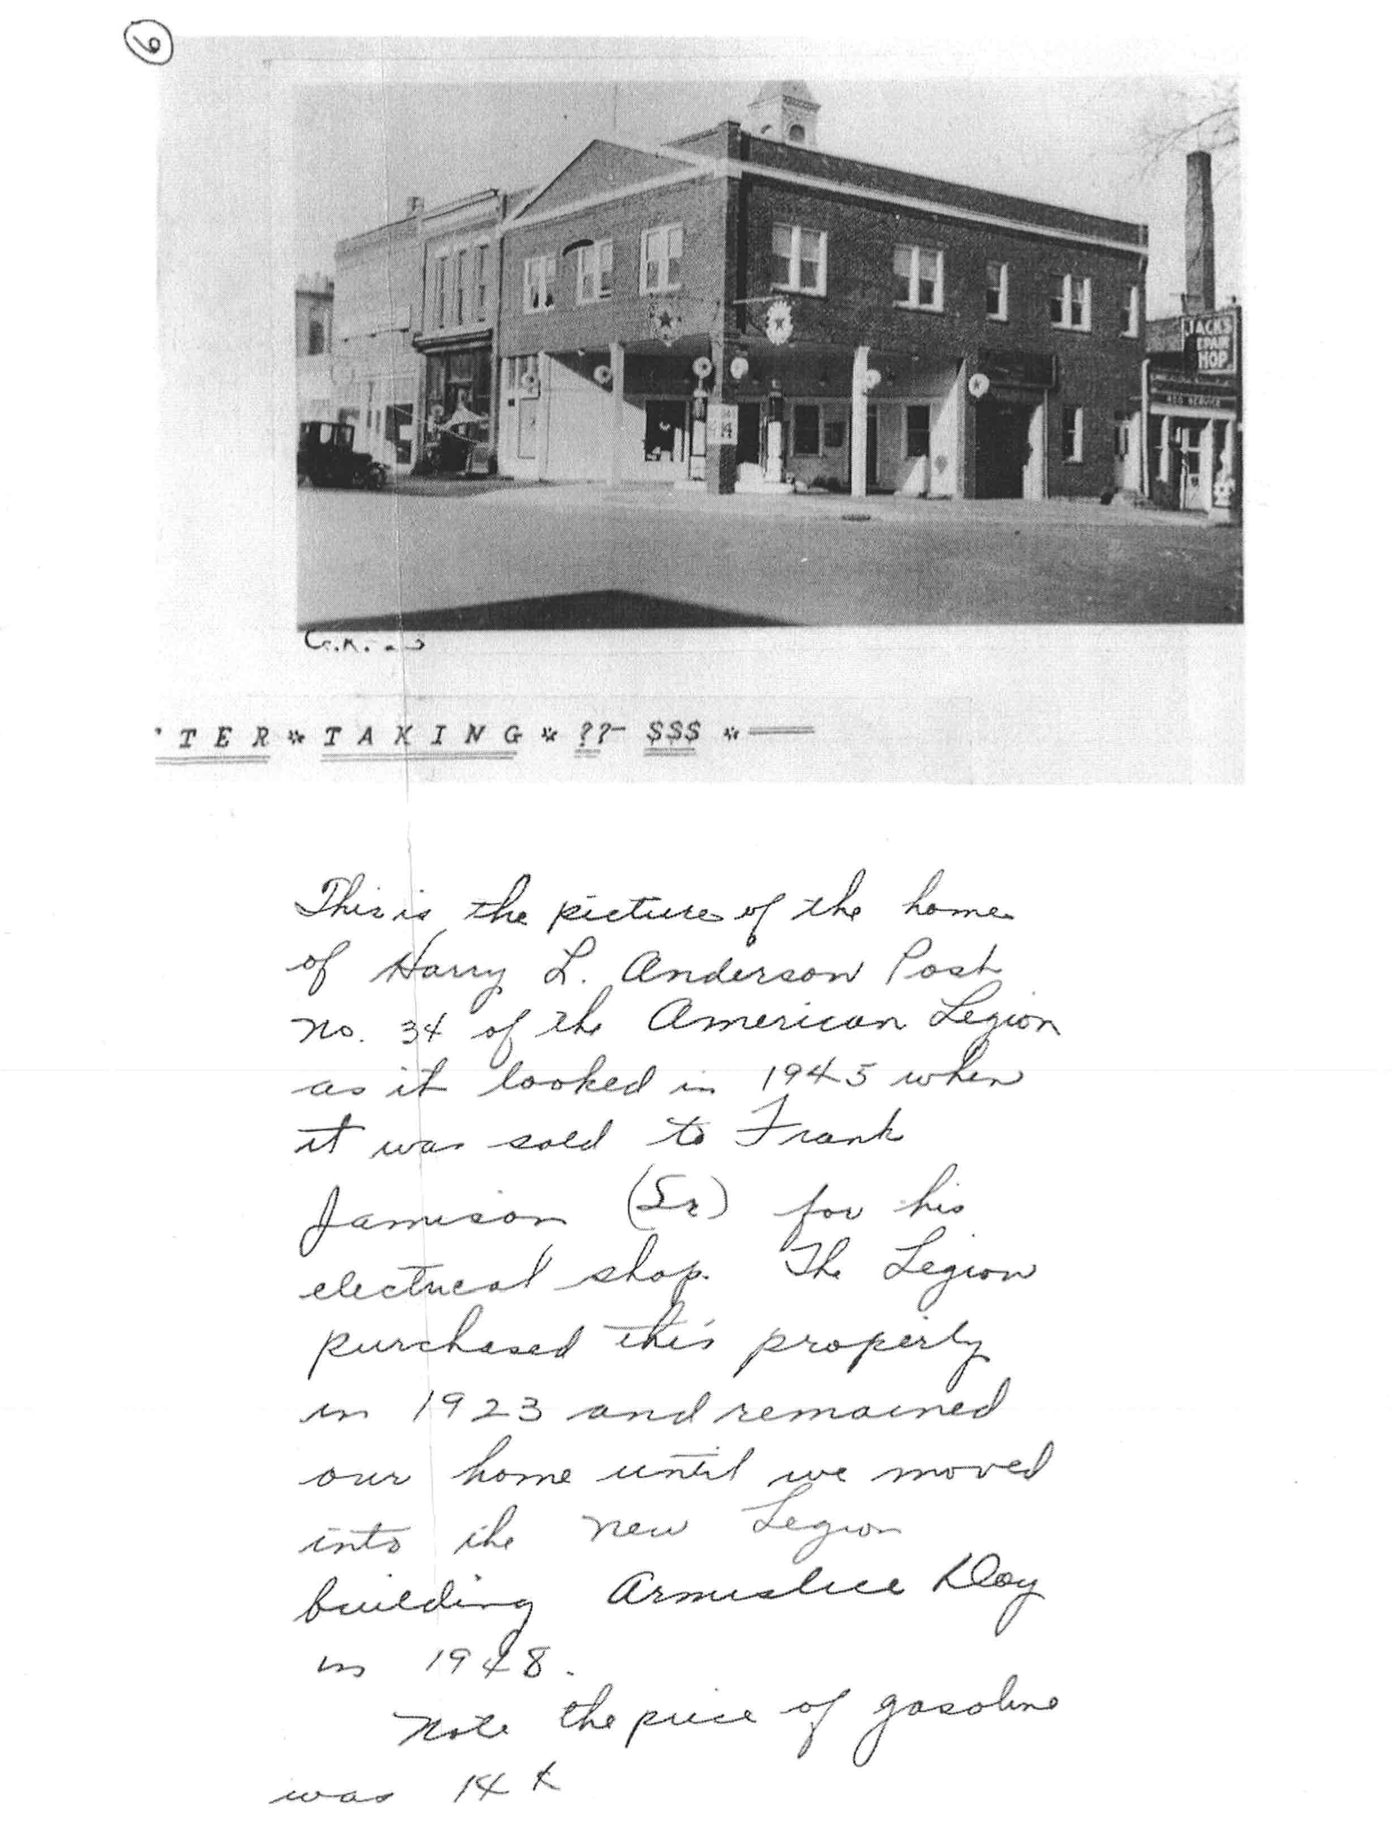 6
JACKS
EPAIR
HOP
REO SERVICE
14
TER * TAKING * ??- $$$ *
This is the picture of the home
of Harry L. Anderson Post
no. 34 of the American Legion
as it looked in 1945 when
it was sold to Frank
Jamison (Sr) for his
electrical shop. The Legion
purchased this property
in 1923 and remained
our home until we moved
into the new Legion
building Armistice Day
in 1948.
Note the price of gasoline
was 14¢